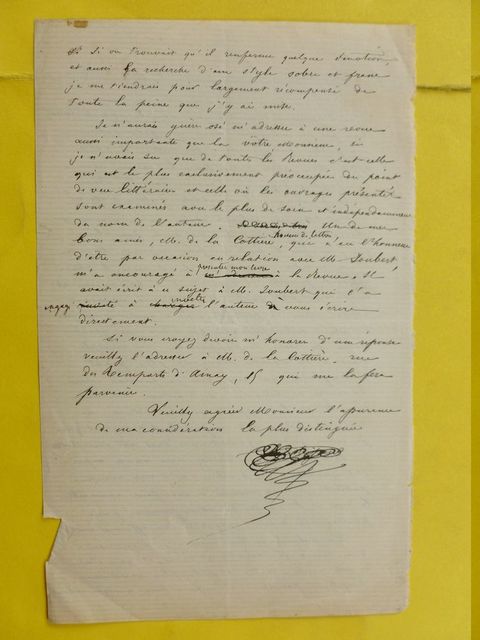 Si on trouvait qu'il renferme quelque émotion,
et aussi la recherche d'un style sobre et franc
je me tiendrais pour largement récompensé de
toute la peine que j'y ai mise.
Je n'aurais guère osé m'adresser à une revue
aussi importante que la votre, Monsieur, si
je n'avais su que de toutes les Revues c'est celle
qui est le plus exclusivement préoccupée du point
de vue littéraire et celle où les ouvrages présentés
sont examinés avec le plus de soin et indépendamment
du nom de l'auteur. Un de mes
bons amis, M. de la Cottière, que a eu l'honneur
d'être par occasion en relation avec M. Joubert,
m'a encouragé à présenter mon livre à la Revue. Il
avait écrit à ce sujet à M. Joubert qui l'a
invité à l'auteur à vous écrire
directement.
Si vous croyez devoir m'honorer d'une réponse
veuillez l'adresser à M. de la Cottière, rue
des Remparts d'Ainay, 15 qui me la fera
parvenir.
Veuillez agréer Monsieur l'assurance
de ma considération la plus distinguée